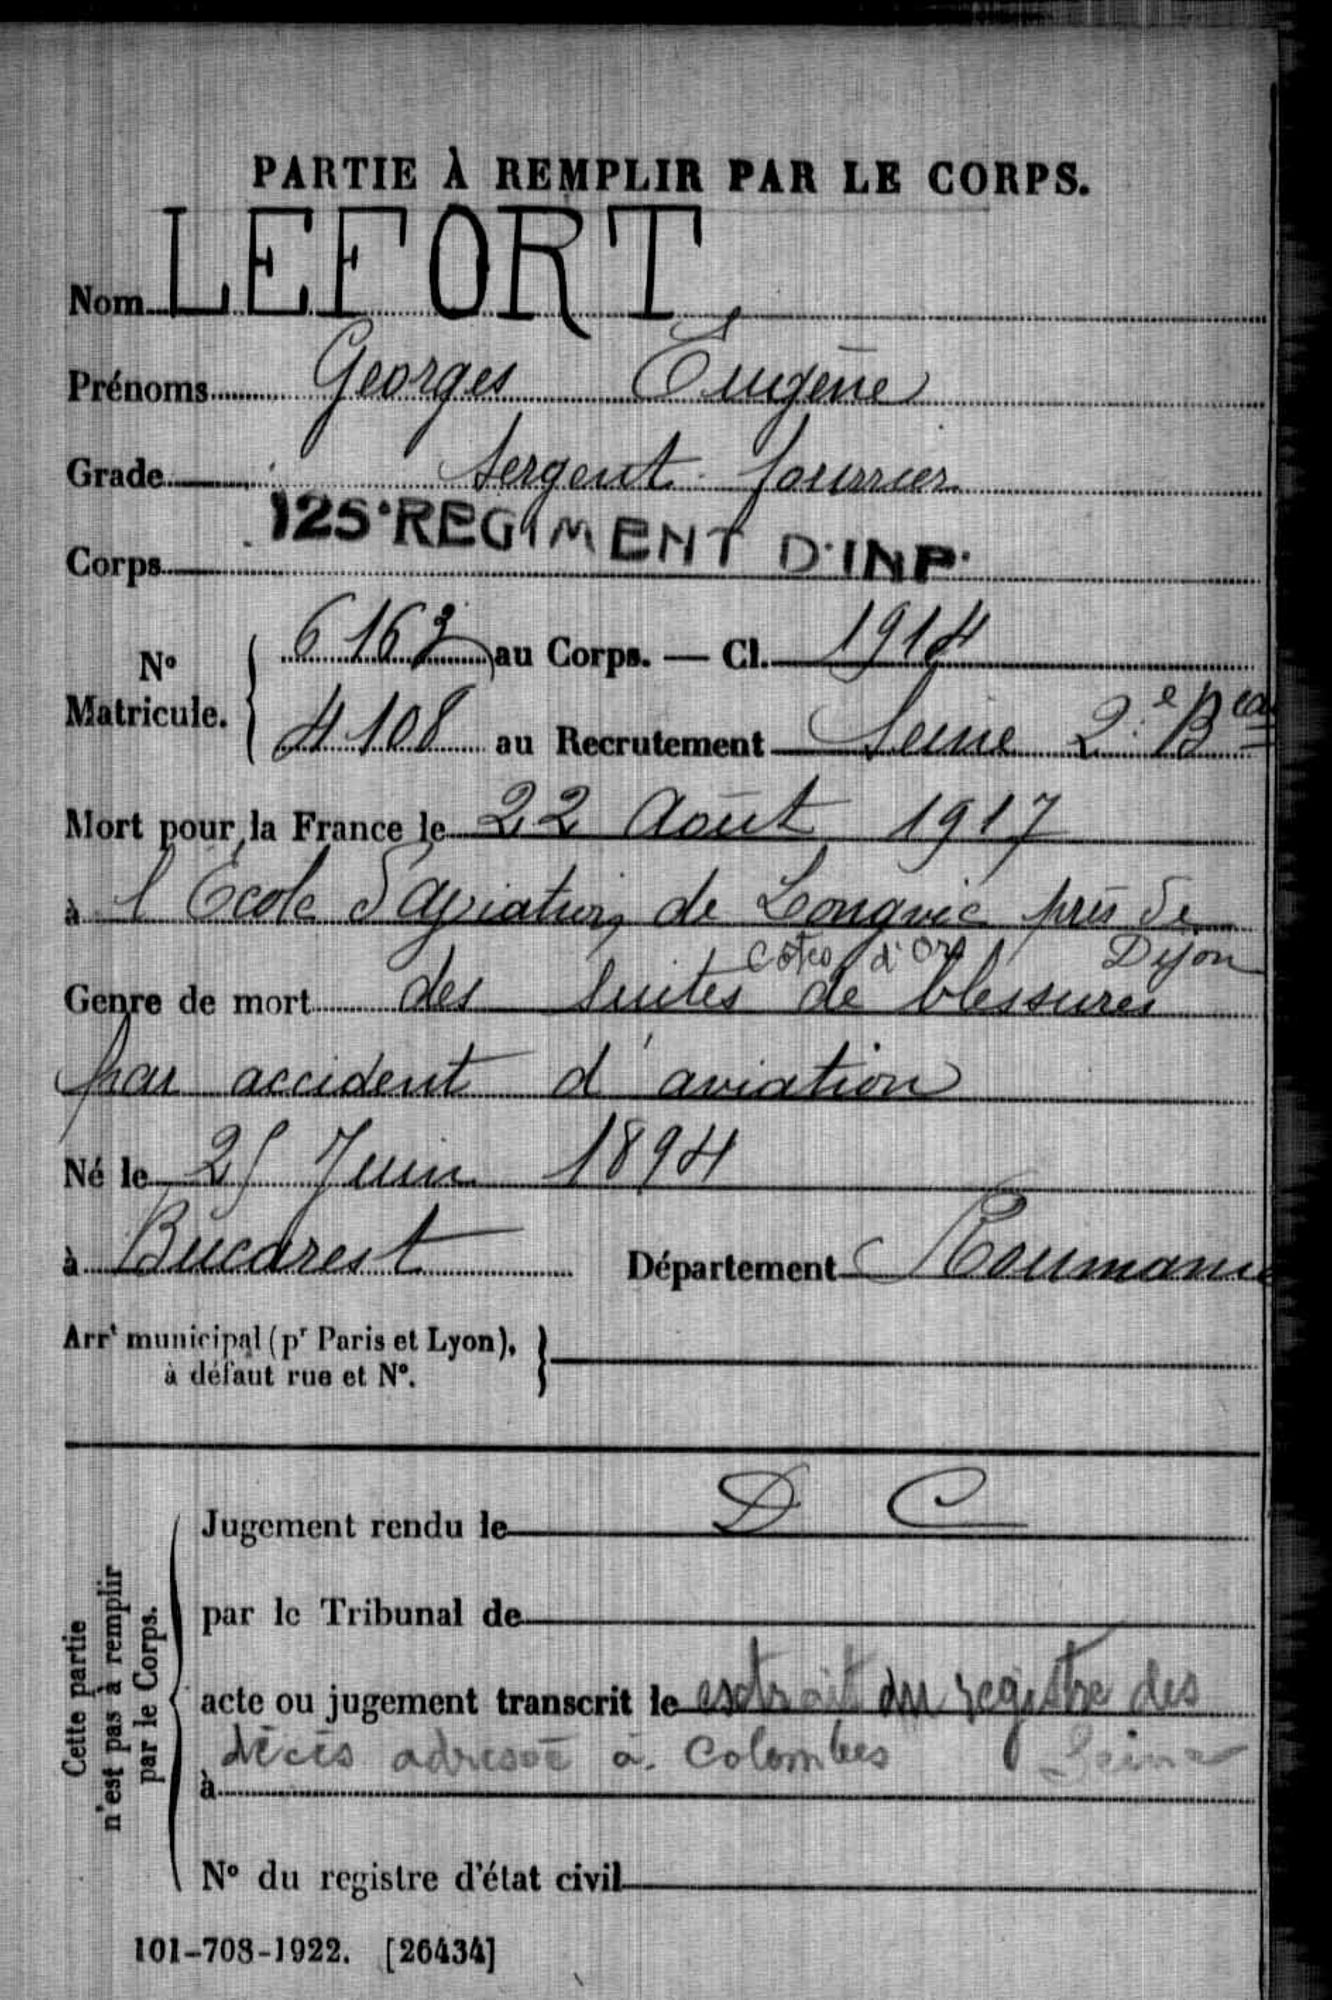 PARTIE À REMPLIR PAR LE CORPS.
Nom LEFORT
Prénoms Georges Eugène
Grade Sergent fourrier
Corps 125e REGIMENT D'INF.
No Matricule. { 6163 au Corps. — Cl. 1914
4108 au Recrutement Seine 2e Beau
Mort pour la France le 22 Août 1917
à l'Ecole d'aviation de Longvic près de Dijon
Côte d'Or
Genre de mort des suites de blessures
par accident d'aviation
Né le 25 Juin 1894
à Bucarest Département Roumanie
Arrt municipal (pr Paris et Lyon), à défaut rue et No. }
Cette partie n'est pas à remplir par le Corps.
Jugement rendu le D C
par le Tribunal de
acte ou jugement transcrit le extrait du registre des
décès adressé à Colombes Seine
à
No du registre d'état civil
101-708-1922. [26434]